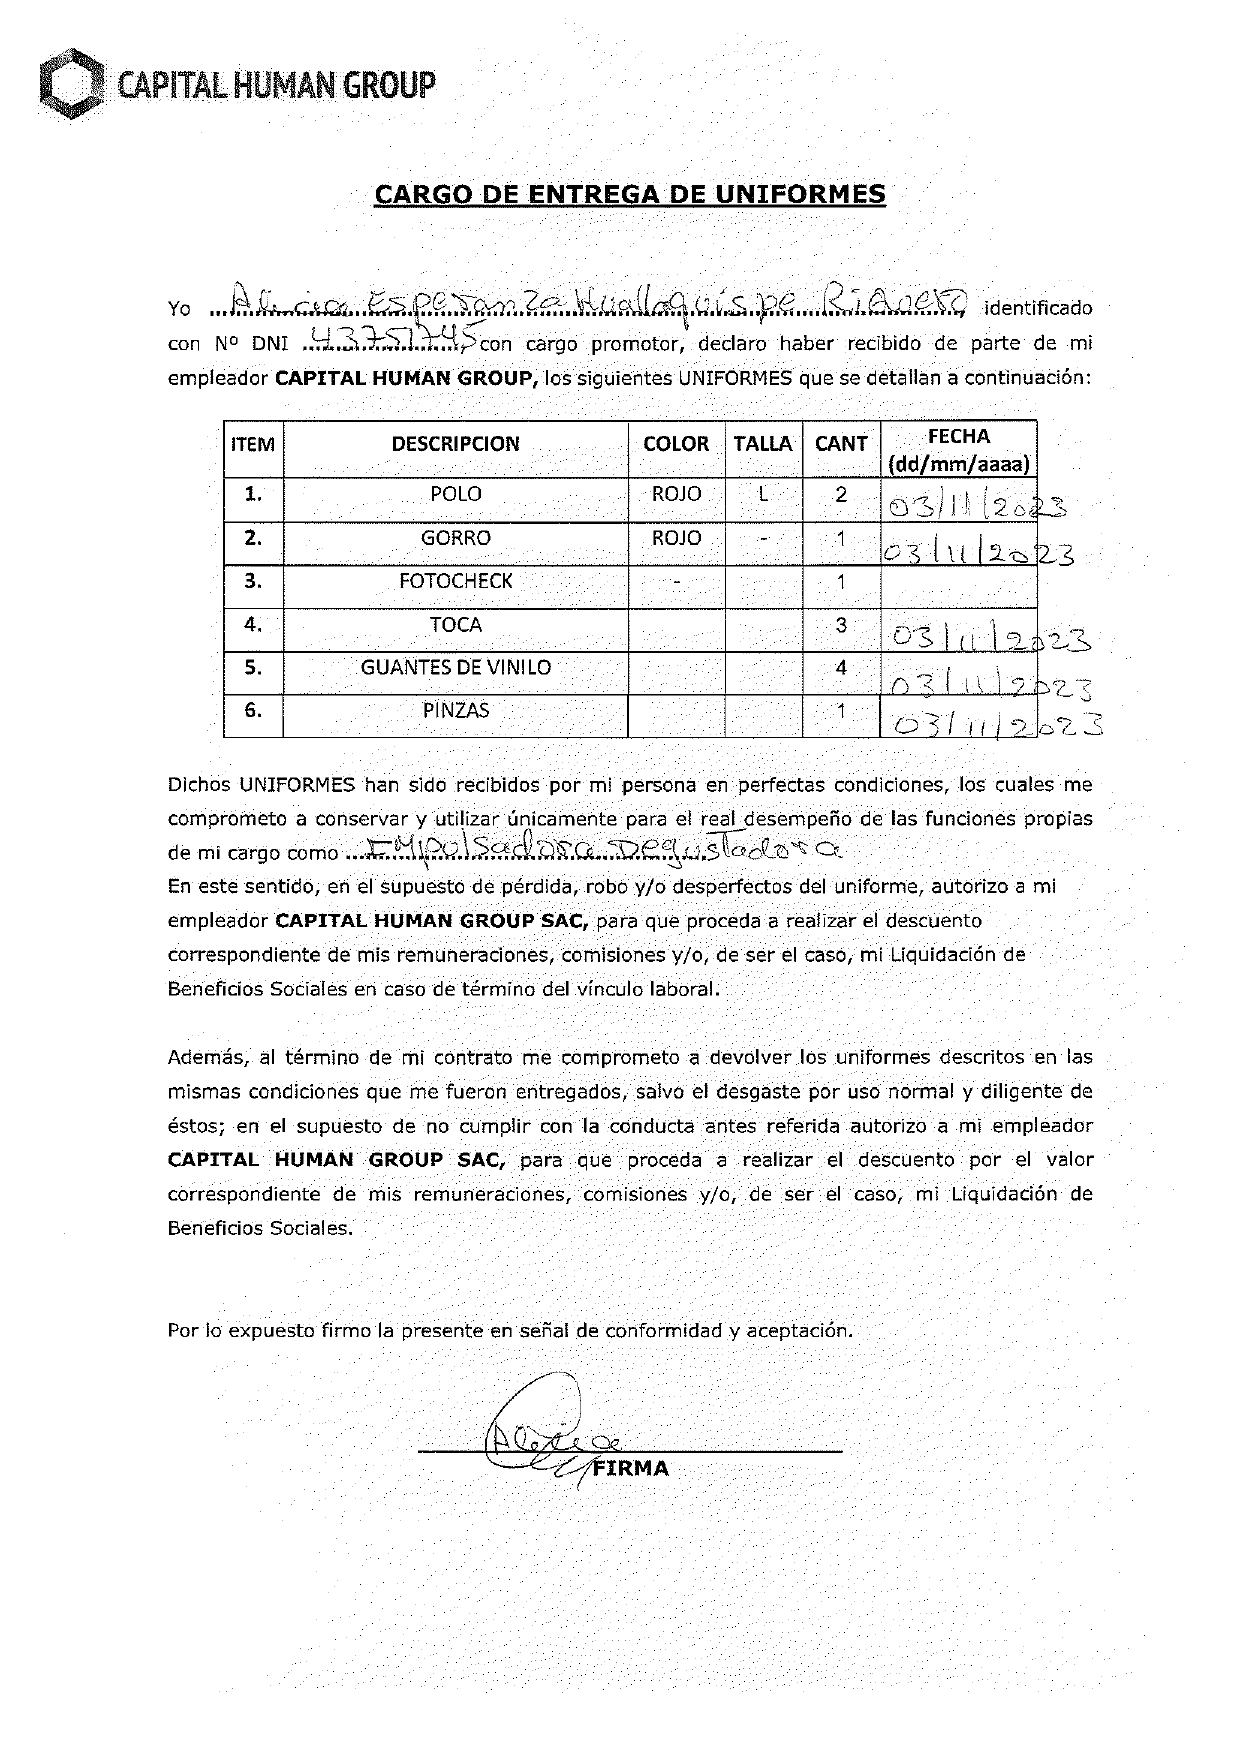 CAPITAL HUMAN GROUP
CARGO DE ENTREGA DE UNIFORMES
Yo Alicia Esperanza Huallaquispe identificado
con Nº DNI 43751745 con cargo promotor, declaro haber recibido de parte de mi
empleador CAPITAL HUMAN GROUP, los siguientes UNIFORMES que se detallan a continuación:
ITEM DESCRIPCION COLOR TALLA CANT FECHA (dd/mm/aaaa)
1. POLO ROJO L 2 03/11/2023
2. GORRO ROJO - 1 03/11/2023
3. FOTOCHECK - 1
4. TOCA 3 03/11/2023
5. GUANTES DE VINILO 4 03/11/2023
6. PINZAS 1 03/11/2023
Dichos UNIFORMES han sido recibidos por mi persona en perfectas condiciones, los cuales me
comprometo a conservar y utilizar únicamente para el real desempeño de las funciones propias
de mi cargo como Empulsadora Degustadora
En este sentido, en el supuesto de pérdida, robo y/o desperfectos del uniforme, autorizo a mi
empleador CAPITAL HUMAN GROUP SAC, para que proceda a realizar el descuento
correspondiente de mis remuneraciones, comisiones y/o, de ser el caso, mi Liquidación de
Beneficios Sociales en caso de término del vínculo laboral.
Además, al término de mi contrato me comprometo a devolver los uniformes descritos en las
mismas condiciones que me fueron entregados, salvo el desgaste por uso normal y diligente de
éstos; en el supuesto de no cumplir con la conducta antes referida autorizo a mi empleador
CAPITAL HUMAN GROUP SAC, para que proceda a realizar el descuento por el valor
correspondiente de mis remuneraciones, comisiones y/o, de ser el caso, mi Liquidación de
Beneficios Sociales.
Por lo expuesto firmo la presente en señal de conformidad y aceptación.
FIRMA